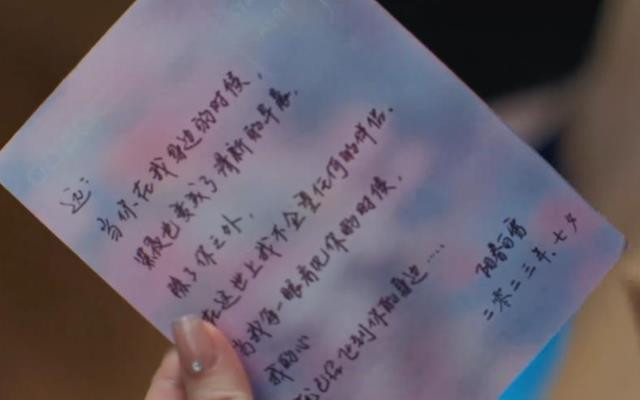 远:
当你在我身边的时候,
黑夜也变成了清新的早晨.
除了你之外,
在这世上我不企望任何的伴侣.
当我第一眼看见你的时候,
我的心
就已经飞到你的身边....
阳春白雪
二零二三年.七夕